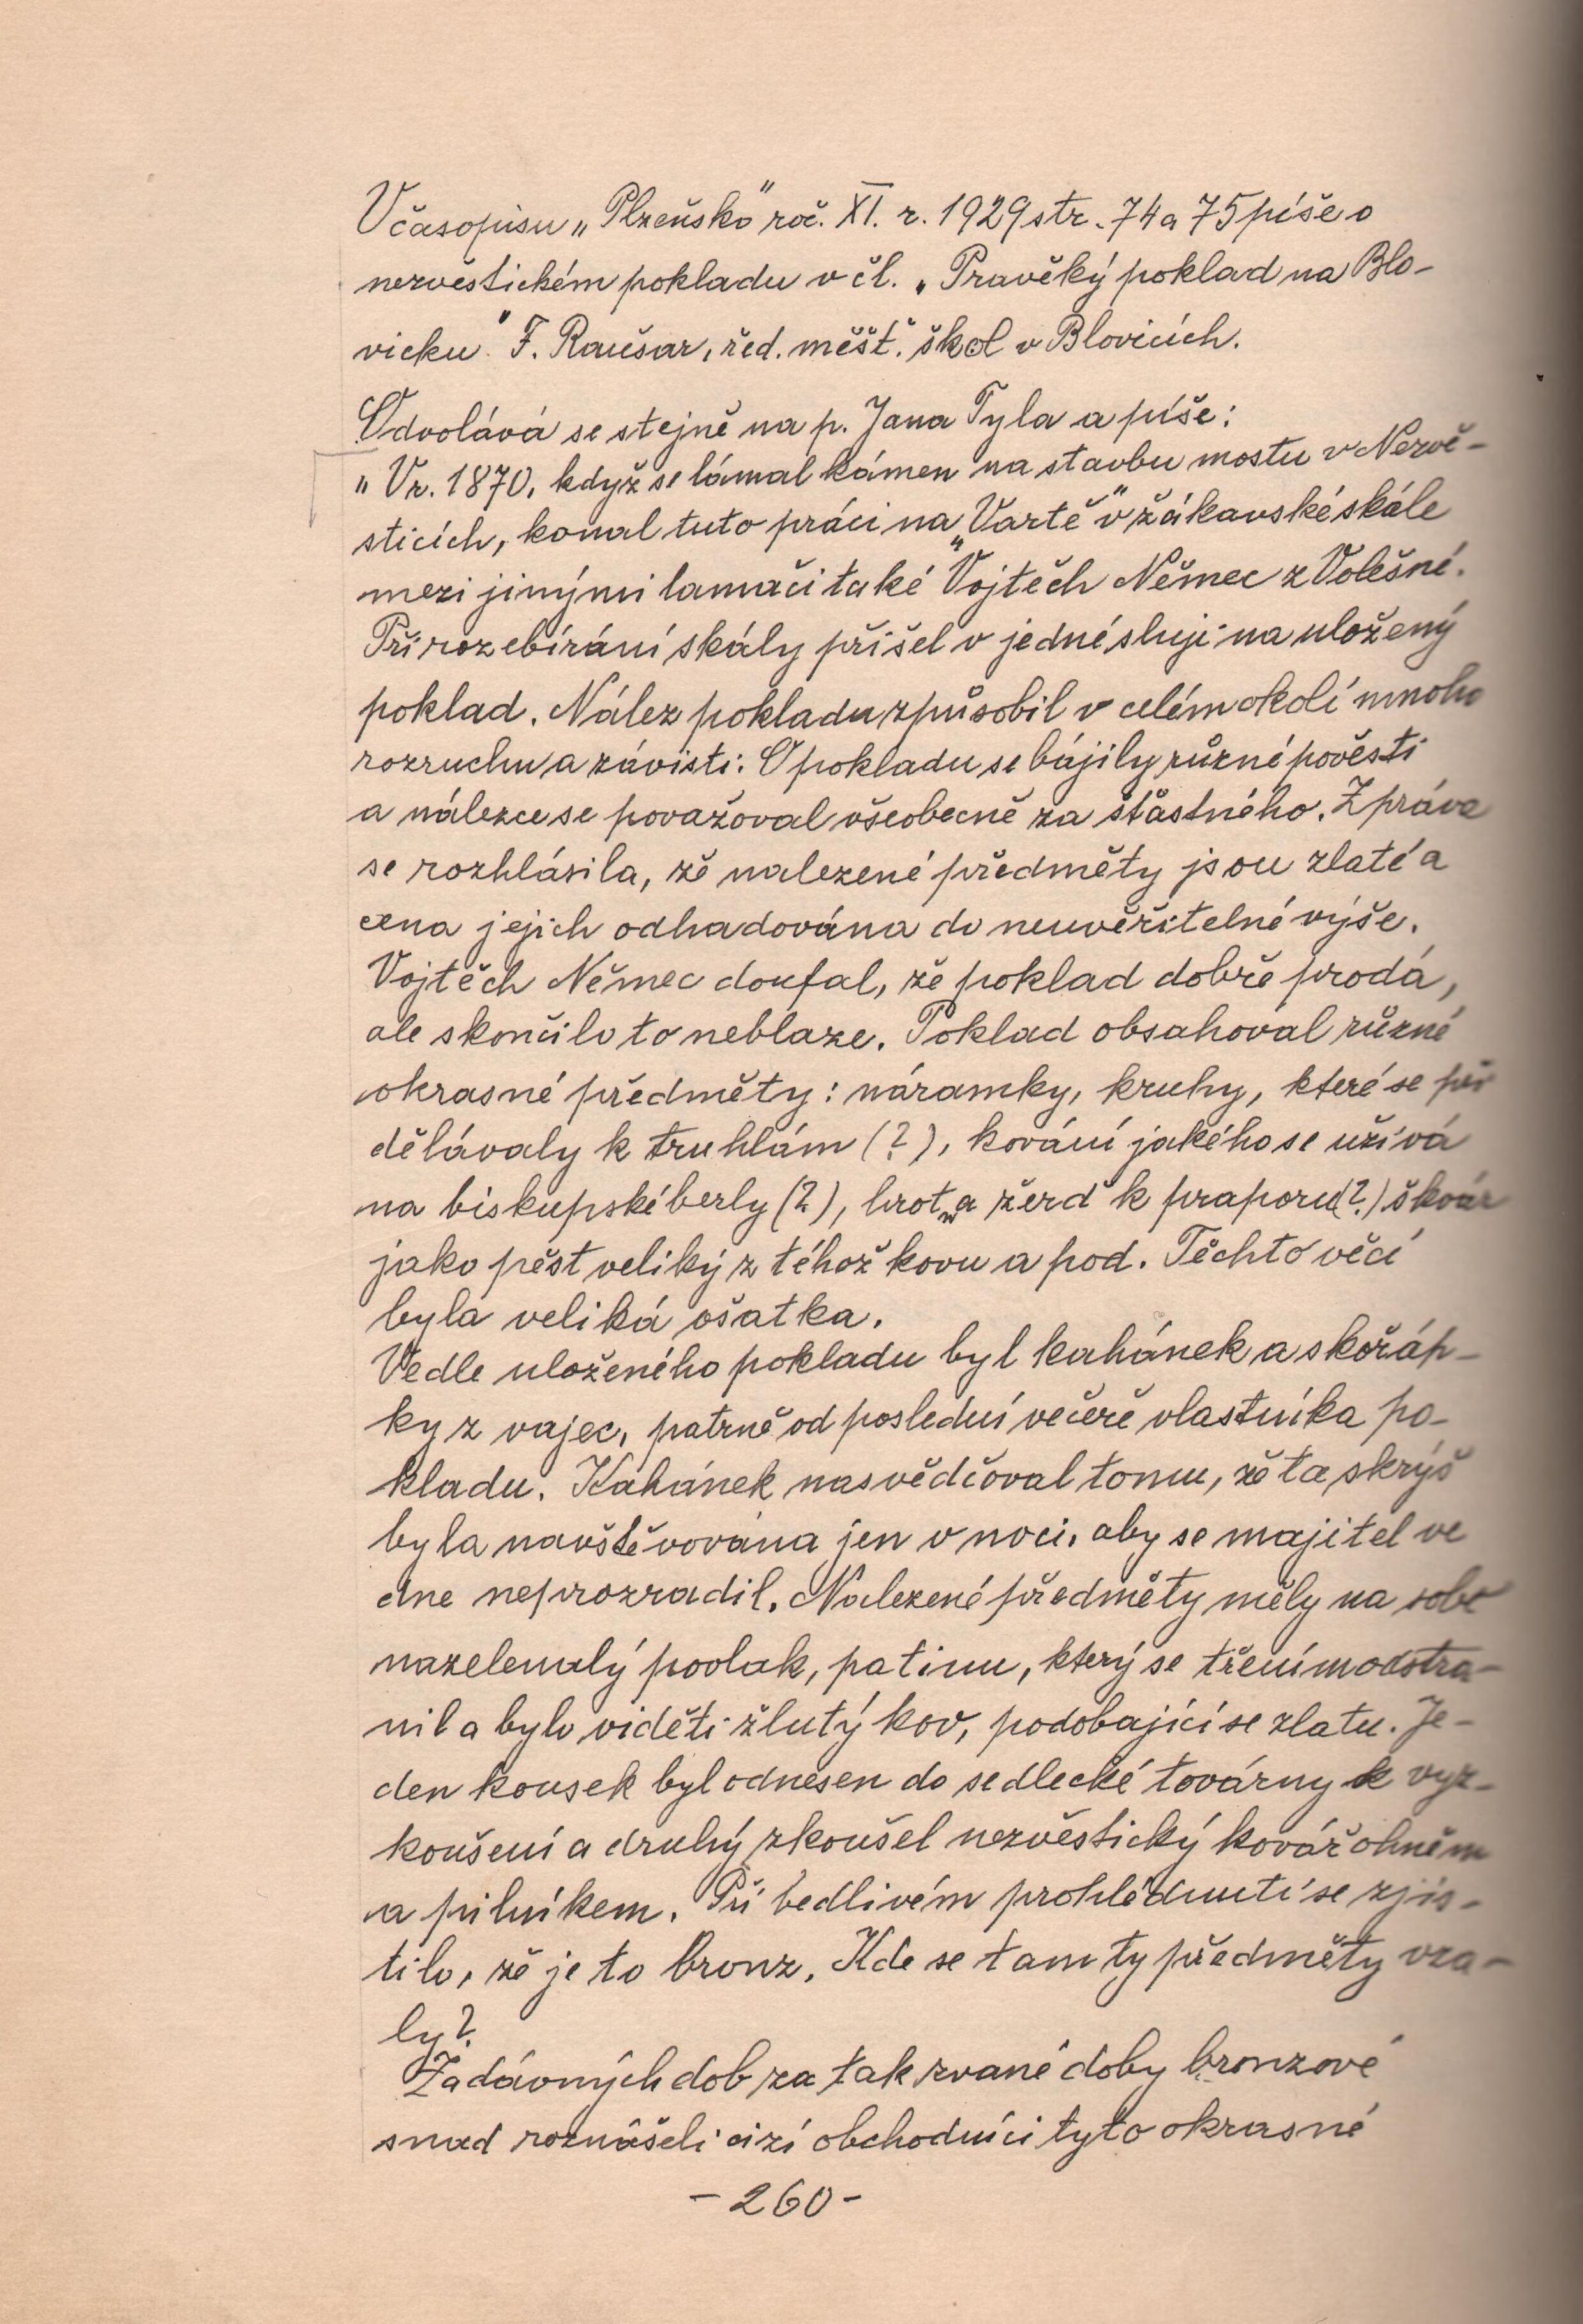 V časopisu „Plzeňsko" roč. XI. r. 1929 str. 74 a 75 píše o
nezvěstickém pokladu v čl. „Pravěký poklad na Blo-
vicku" F. Raušar, řed. měšť. škol v Blovicích.
Odvolává se stejně na p. Jana Tyla a píše:
„V r. 1870, když se lámal kámen na stavbu mostu v Nezvě-
sticích, konal tuto práci na „Vartě" v žákavské skále
mezi jinými lamači také Vojtěch Němec z Volešné.
Při rozebírání skály přišel v jedné sluji na uložený
poklad. Nález pokladu způsobil v celém okolí mnoho
rozruchu a závisti. O pokladu se bájily různé pověsti
a nálezce se považoval všeobecně za šťastného. Zpráva
se rozhlásila, že nalezené předměty jsou zlaté a
cena jejich odhadována do neuvěřitelné výše.
Vojtěch Němec doufal, že poklad dobře prodá,
ale skončilo to neblaze. Poklad obsahoval různé
okrasné předměty: náramky, kruhy, které se při
dělávaly k truhlám (?), kování jakého se užívá
na biskupské berly (?), hrot a žerď k praporu (?) škvár
jako pěst veliký z téhož kovu a pod. Těchto věcí
byla veliká ošatka.
Vedle uloženého pokladu byl kahánek a skořáp-
ky z vajec, patrně od poslední večeře vlastníka po-
kladu. Kahánek nasvědčoval tomu, že ta skrýš
byla navštěvována jen v noci, aby se majitel ve
dne neprozradil. Nalezené předměty měly na sobě
nazelenalý povlak, patinu, který se třením odstra-
nil a bylo viděti žlutý kov, podobající se zlatu. Je-
den kousek byl odnesen do sedlecké továrny k vyz-
koušení a druhý zkoušel nezvěstický kovář ohněm
a pilníkem. Při bedlivém prohlédnutí se zjis-
tilo, že je to bronz. Kde se tam ty předměty vza-
ly?
Za dávných dob za tak zvané doby bronzové
snad roznášeli cizí obchodníci tyto okrasné
- 260 -